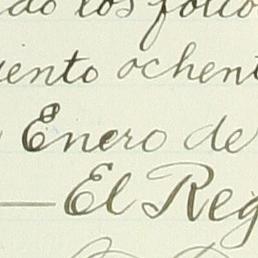 do los folio
iento ochent
Enero de
— El Reg